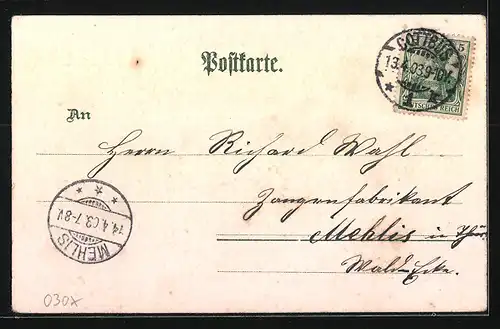 COTTBUS
13.4.03.9-10V.
5
DEUTSCHES REICH
Postkarte.
An
Herrn Richard Wahl
Zangenfabrikant
Mehlis in Thür.
Wald-Ecke.
14.4.03.7-8V.
MEHLIS
030x